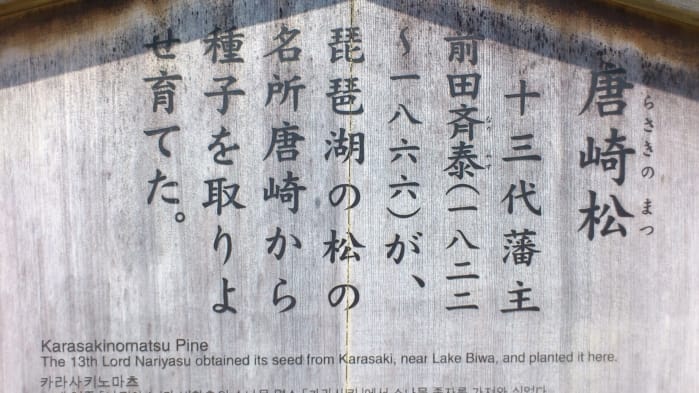 唐崎松
らさきの まつ
十三代藩主
前田斉泰(一八二二
〜一八六六)が、
琵琶湖の松の
名所唐崎から
種子を取りよ
せ育てた。
Karasakinomatsu Pine
The 13th Lord Nariyasu obtained its seed from Karasaki, near Lake Biwa, and planted it here.
카라사키노마츠